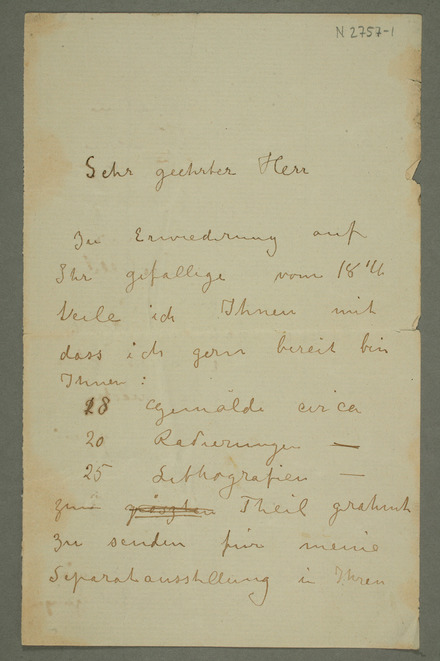 N 2757-1
Sehr geehrter Herr
In Erwiederung auf
Ihr gefällige vom 18 4/4
teile ich Ihnen mit
dass ich gern bereit bin
Ihnen:
28 Gemälde circa
20 Radierungen —
25 Lithografien —
zum größten Theil grahmt
zu senden für meine
Separatausstellung in Ihren